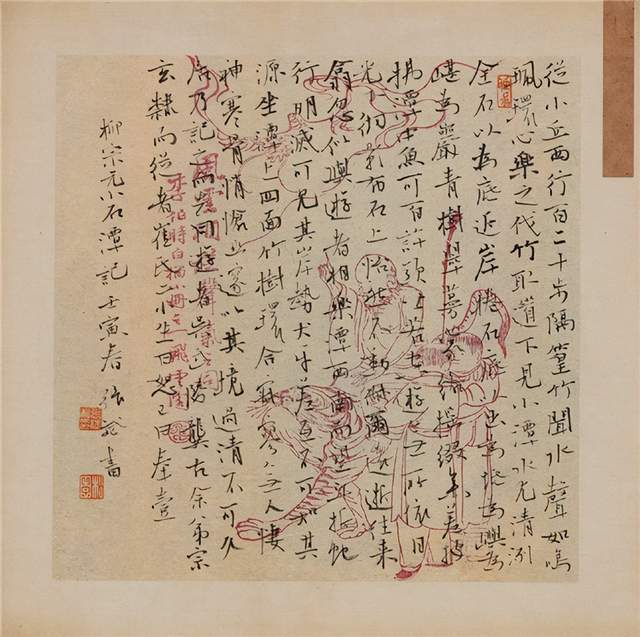 從小丘西行百二十步隔篁竹聞水聲如鳴
珮環心樂之伐竹取道下見小潭水尤清冽
全石以為底近岸捲石底出為坻為嶼為
嵁為巖青樹翠蔓蒙絡搖綴參差披
拂潭中魚可百許頭皆若空游無所依日
光下澈影布石上怡然不動俶爾遠逝往來
翕忽似與遊者相樂潭西南而望斗折蛇
行明滅可見其岸勢犬牙差互不可知其
源坐潭上四面竹樹環合寂寥無人悽
神寒骨悄愴幽邃以其境過清不可久
居乃記之而去同遊者吳武陵龔古余弟宗
玄隸而從者崔氏二小生曰恕己曰奉壹
柳宗元小石潭記壬寅春張書
李伯時白描小冊之